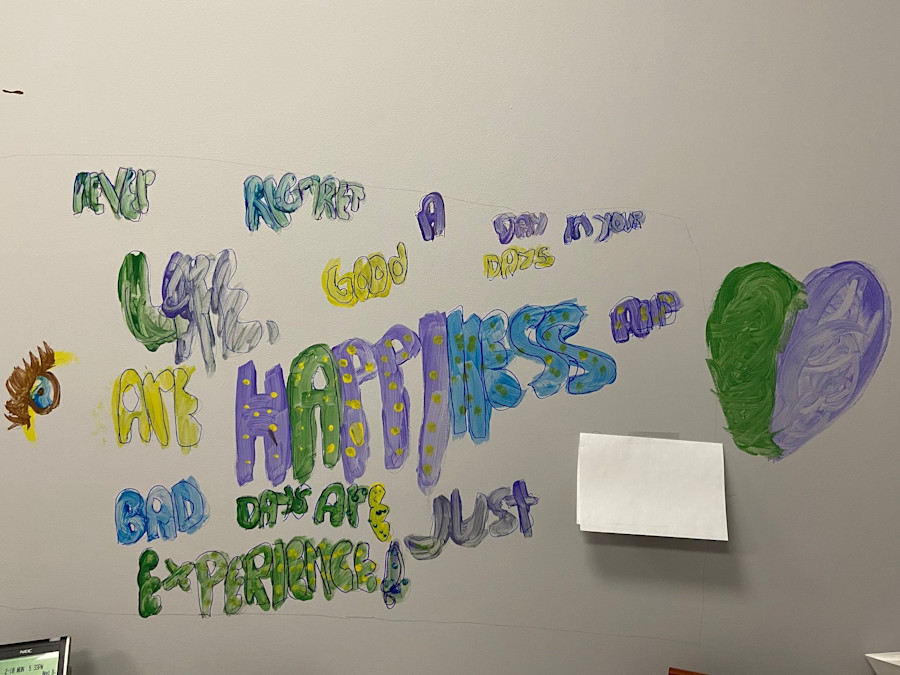 NEVER REGRET A DAY IN YOUR
LIFE. GOOD DAYS
ARE HAPPINESS AND
BAD DAYS ARE JUST
EXPERIENCE!
NEC